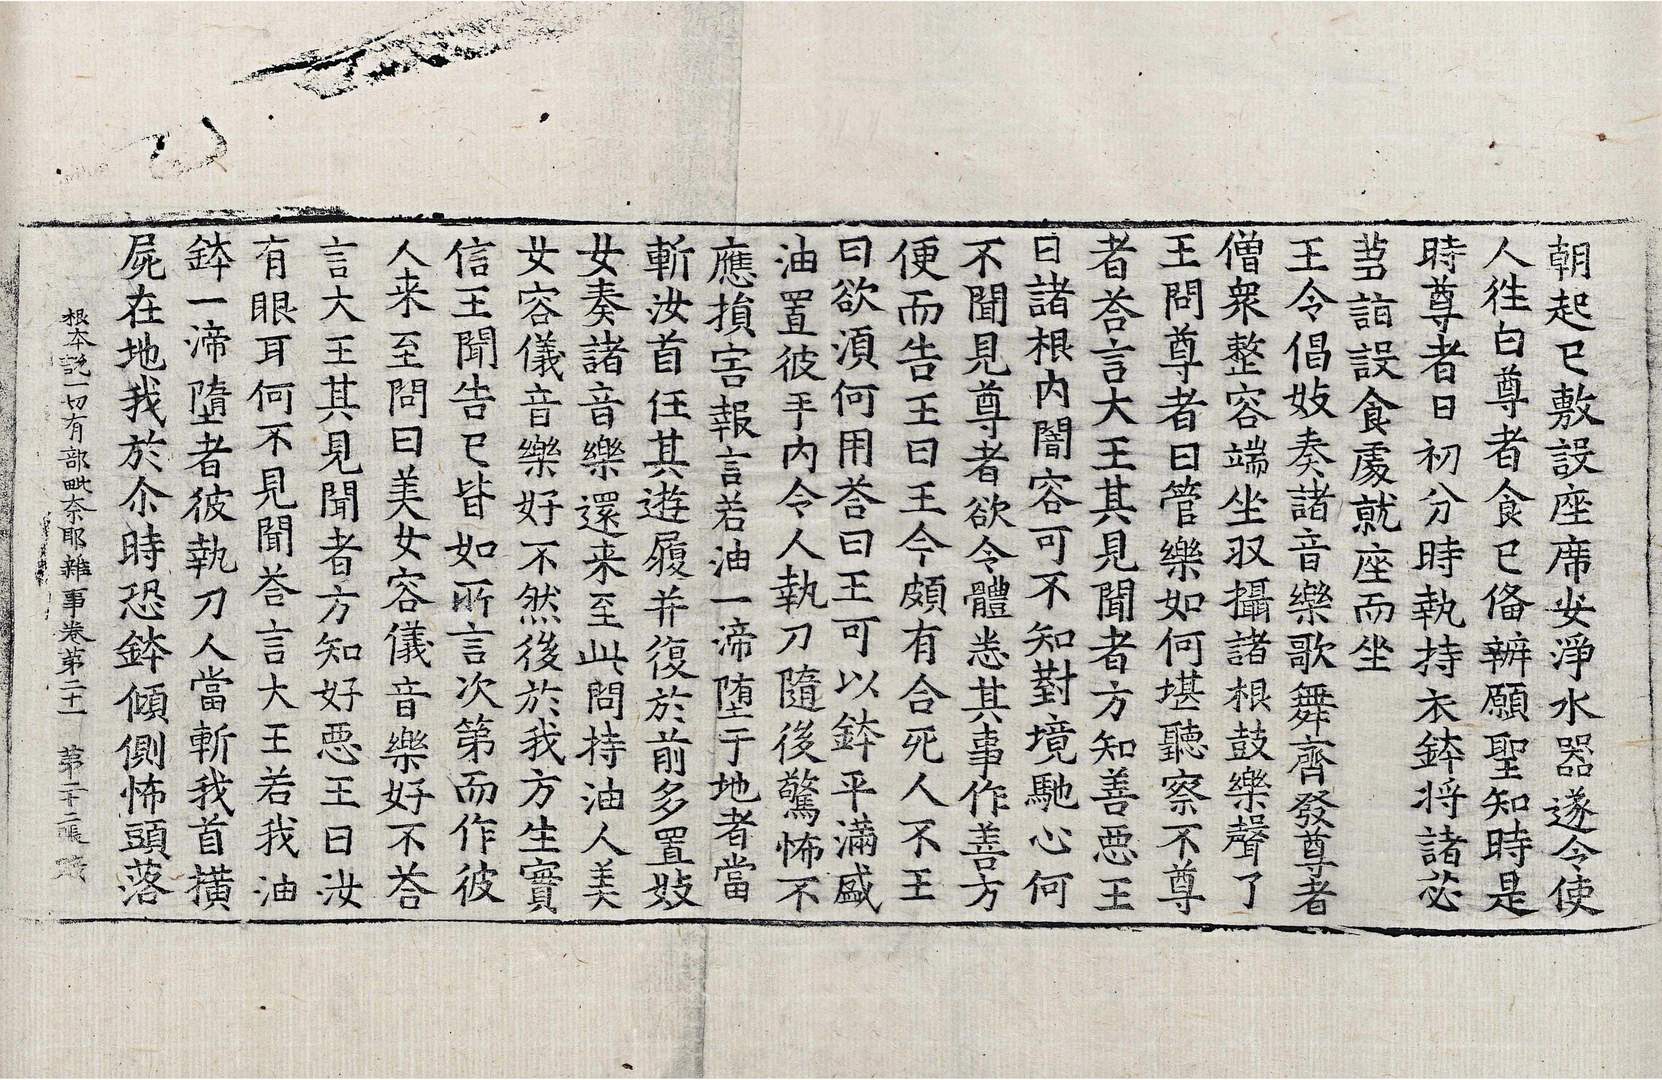 朝起已敷設座席安淨水器遂令使
人徃白尊者食已俻辦願聖知時是
時尊者日初分時執持衣鉢將諸苾
芻詣設食處就座而坐
王令倡妓奏諸音樂歌舞齊發尊者
僧衆整容端坐収攝諸根鼓樂聲了
王問尊者曰管樂如何堪聽察不尊
者荅言大王其見聞者方知善惡王
曰諸根内闇容可不知對境馳心何
不聞見尊者欲令體悉其事作善方
便而告王曰王今頗有合死人不王
曰欲須何用荅曰王可以鉢平滿盛
油置彼手内令人執刀隨後驚怖不
應損害報言若油一渧墮于地者當
斬汝首任其遊履并復於前多置妓
女奏諸音樂還来至此問持油人美
女容儀音樂好不然後於我方生實
信王聞告已皆如所言次第而作彼
人来至問曰美女容儀音樂好不荅
言大王其見聞者方知好惡王曰汝
有眼耳何不見聞荅言大王若我油
鉢一渧墮者彼執刀人當斬我首撗
屍在地我於尒時恐鉢傾側怖頭落
根本說一切有部毗奈耶雜事卷第二十一 第二十二張